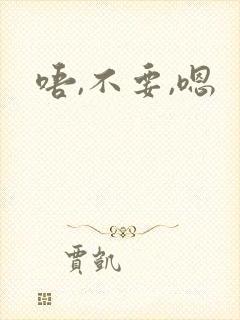 唔,不要,嗯
賈凱